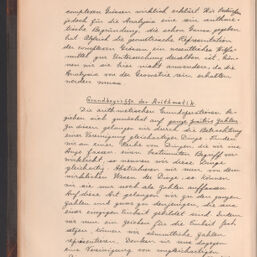 complexen Grössen wirklich erklärt. Wir bedürfen
jedoch für die Analysis eine rein arithme-
tische Begründung, die schon Gauss gegeben
hat. Obschon die geometrische Repräsentation
der complexen Grössen, ein wesentliches Hilfs-
mittel zur Untersuchung derselben ist, können
wir sie hier nicht anwenden, da die
Analysis von der Geometrie rein erhalten
werden muss.
Grundbegriffe der Arithmetik
Die arithmetischen Grundoperationen be-
ziehen sich zunächst auf ganze positive Zahlen.
Zu diesen gelangen wir durch die Betrachtung
einer Vereinigung gleichartiger Dinge. Denken
wir an einer Reihe von Dingen, die wir uns
unter einem bestimmten Begriff ver-
so nennen wir diese Dinge
gleichartig. Abstrahieren wir nun, von dem
wirklichen Wesen der Dinge, so können
wir sie nur noch als Zahlen auffassen.
Auf diese Art gelangen wir zu den ganzen
Zahlen und zwar zu denjenigen, die aus
einer einzigen Einheit gebildet sind. Indem
wir nun ein Zeichen für die Einheit fest-
setzen, können wir sämmtliche Zahlen
repräsentieren. Denken wir uns dagegen
eine Vereinigung von ungleichartigen